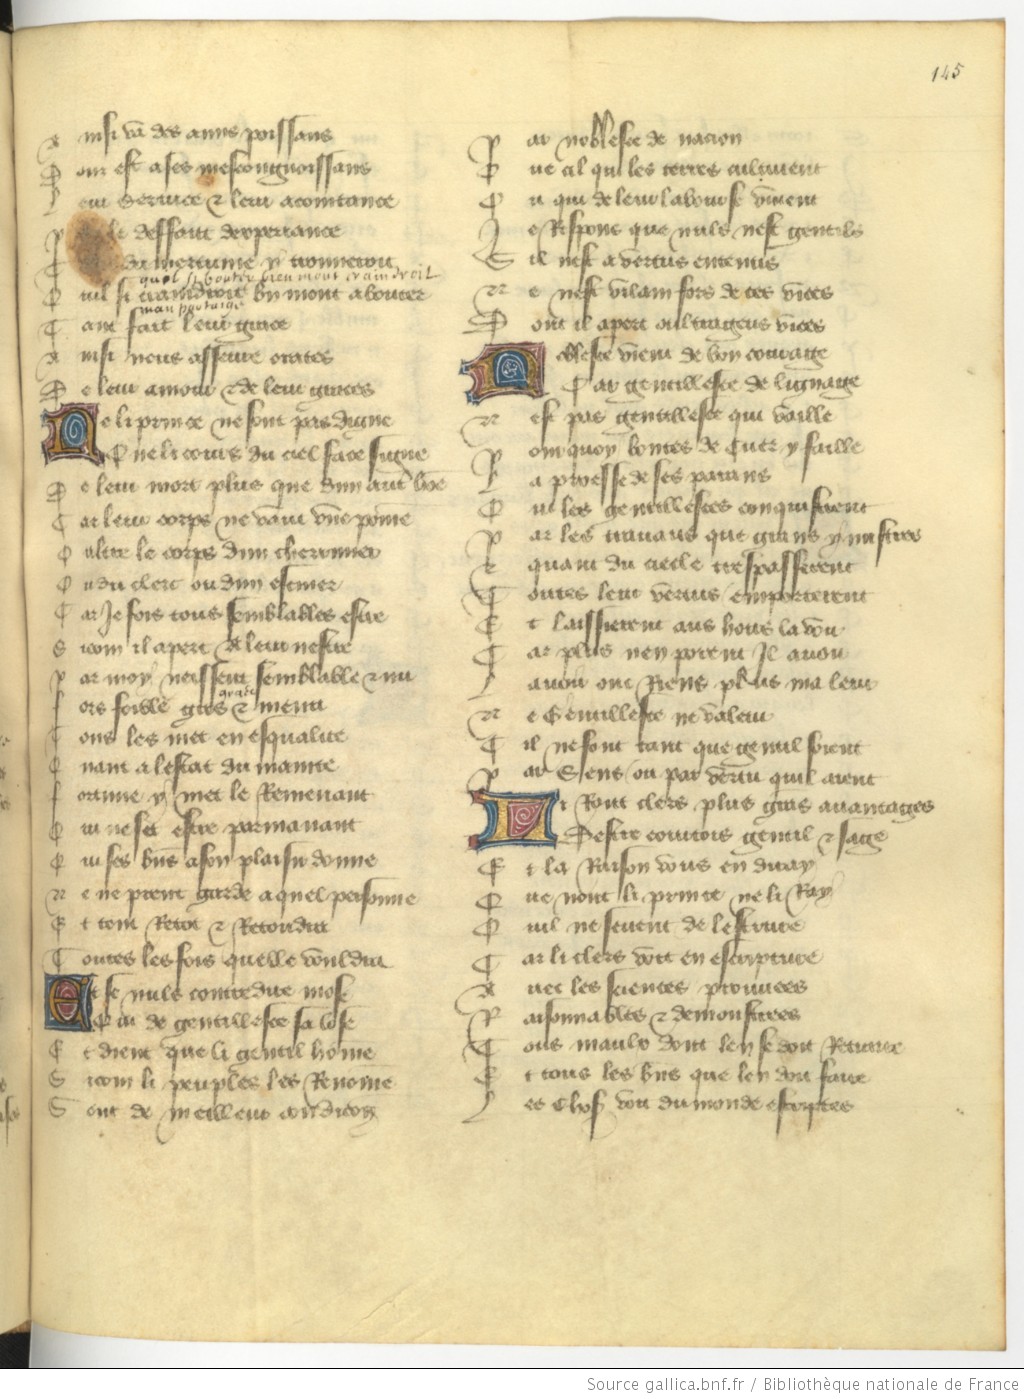 145
A insi va des amis poissans
D ont est a ses mescongnoissans
L eur service et leur acointance
deffaut desperance
T amertume y trouveroit
quol si bouter bien mont craindroit
Q uil si craindroit bn mont a bouter
man portaige
T ant fait leur grace
A insi nous asseure orates
D e leur amour et de leur graces
N e li prince ne sont pas digne
Q ue li cours du ciel face signe
D e leur mort plus que dun autre home
C ar leur corps ne vault une pome
O ultre le corps dun cherretier
O u du clerc ou dun escuier
C ar Je fois tous semblables estre
S icom il apert A leur nestre
P ar moy neissent semblable et nu
grade
F ors foible gros et menu
T ous les met en esqualite
Q uant a lestat dumanite
F ortune y met le Remenant
Q ui ne set estre parmanant
Q ui ses biens a son plaisir donne
N e ne prent garde a quel personne
E t tout Retot et Retondra
T outes les fois quelle vouldra
E t se nuls contredire mose
Q ui de gentillesce salose
E t dient que li gentil home
S icom li peuples les Renome
S ont de meilleur condicion
P ar noblesce de nacion
Q ue cil qui les terres cultivent
O u qui de leur labour se vivent
J e Respons que nuls nest gentils
S il nest a vertus ententis
N e nest vilain fors de ses vices
D ont il apert oultrageus vices
N oblesce vient de bon courage
C ar gentillesce de lignage
N est pas gentillesce qui vaille
P our quoy bontes de Cuer y faille
L a proesse de ses parens
Q ui les gentillesces conquistrent
P ar les travaus que grans y mistrent
E t quant du siecle trespasserent
T outes leur vertus emporterent
E t laissierent aus hoirs lavoir
C ar plus nen porent Il avoir
L avoir ont Riens plus na leur
N e Gentillesce ne valeur
S il ne font tant que gentil soient
P ar Sens ou par vertu quil aient
E t Ront clers plus grans avantages
D estre courtois gentil et sage
E t la Raison vous en diray
Q ue nont li prince ne li Roy
Q uil ne sevent de lestruture
C ar li clers voit en escripture
A vec les sciences prouvees
R aisonnables et demonstrees
T ous maulx dont len se doit Retraire
E t tous les biens que len doit faire
L es Choses voit du monde escriptes